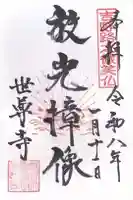 奉拝
令和八年
一月十一日
放光樟像
世尊寺